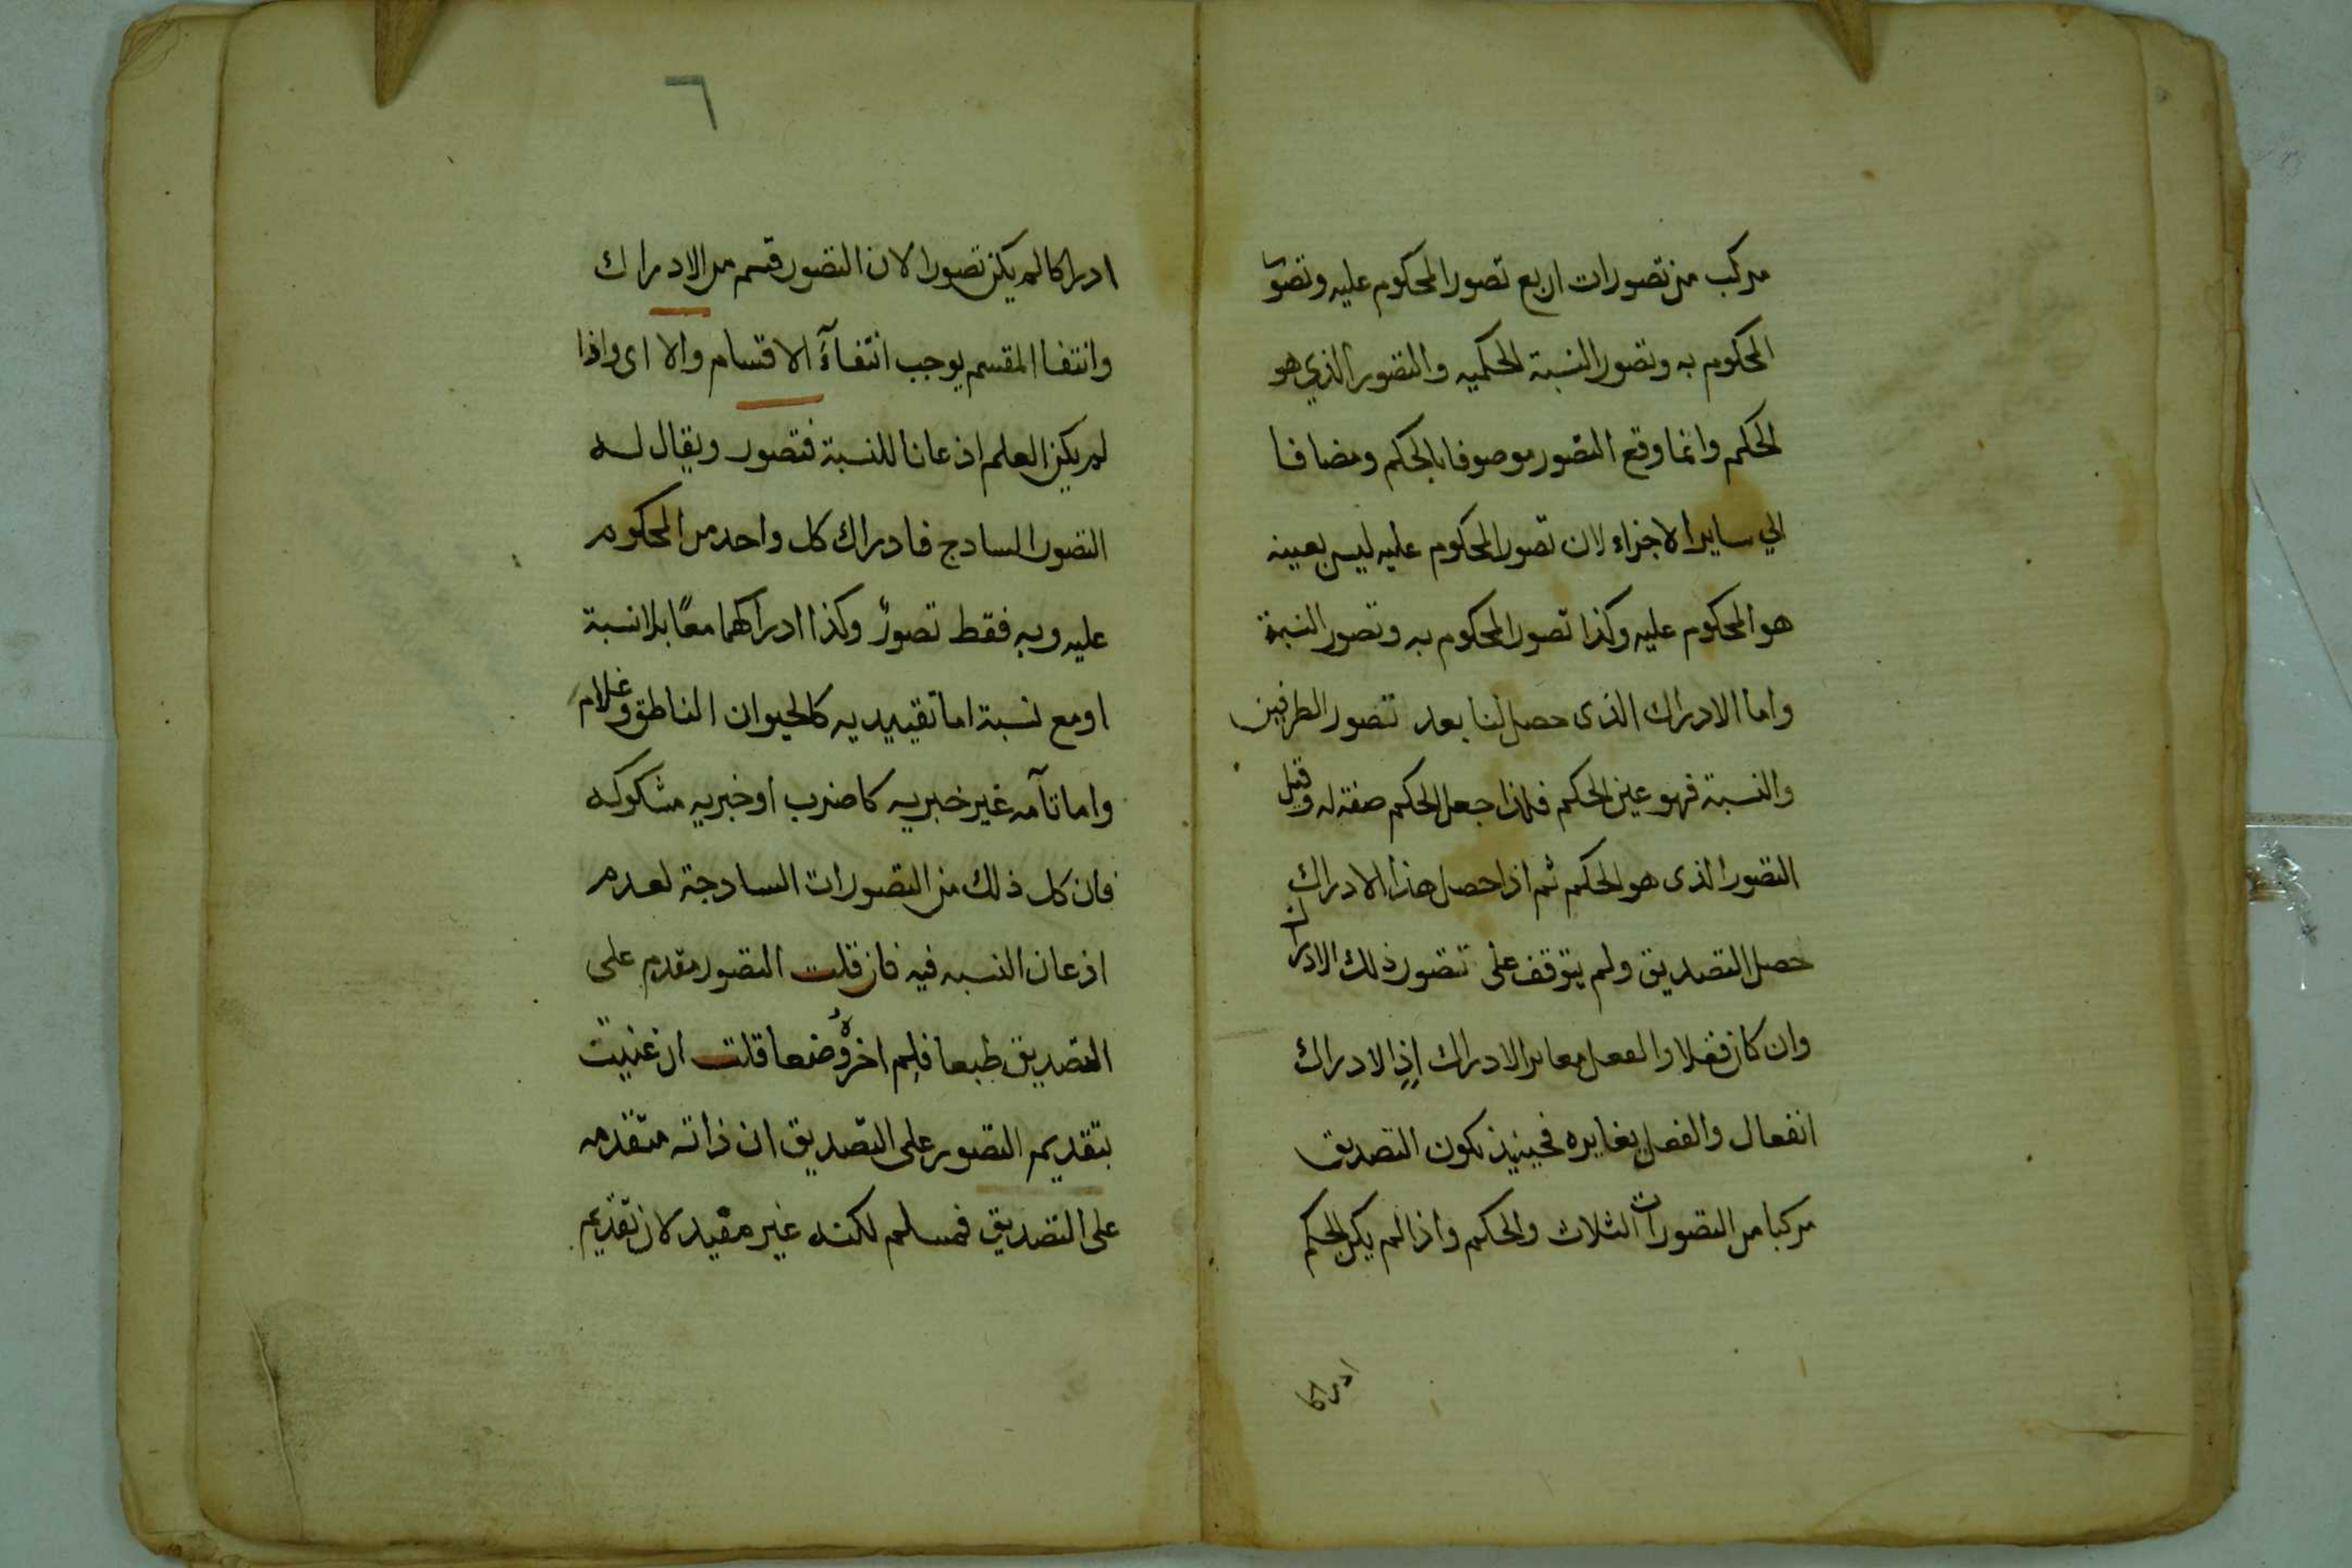 مركب من تصورات اربع تصور المحكوم عليه وتصور
المحكوم به وتصور النسبة الحكميه والتصور الذي هو
الحكم وانما وقع التصور موصوفا بالحكم ومضافا
الي ساير الاجزاء لان تصور المحكوم عليه ليس بعينه
هو المحكوم عليه وكذا تصور المحكوم به وتصور النسبة
واما الادراك الذى حصل لنا بعد تصور الطرفين
والنسبة فهو عين الحكم فلذا جعل الحكم صفة له وقيل
التصور الذى هو الحكم ثم اذا حصل هذا الادراك
حصل التصديق ولم يتوقف على تصور ذلك الادراك
وان كان فعلا والفعل مغاير الادراك اذ الادراك
انفعال والفعل يغايره فحينيذ يكون التصديق
مركبا من التصورات الثلاث والحكم واذا لم يكن الحكم
ادراكا
٦
ادراكا لم يكن تصورا لان التصور قسم من الادراك
وانتفا المقسم يوجب انتفآء الاقسام والا اى واذا
لم يكن العلم اذعانا للنسبة فتصور ويقال له
التصور السادج فادراك كل واحد من المحكوم
عليه وبه فقط تصورٌ وكذا ادراكهما معًا بلا نسبة
او مع نسبة اما تقييديه كالحيوان الناطق وغلام
واما تآمه غير خبريه كاضرب او خبريه مشكوكه
فان كل ذلك من التصورات السادجة لعدم
اذعان النسبه فيه فان قلت التصور مقدم على
التصديق طبعا فلِم اخره وضعا قلت ان عنيت
بتقديم التصور على التصديق ان ذاته متقدمه
على التصديق فمسلم لكنه غير مفيد لان تقديم